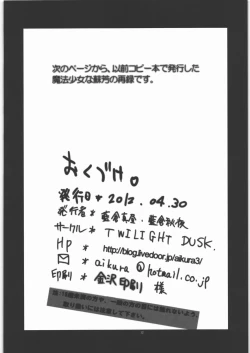 次のページから、以前コピー本で発行した
魔法少女な蘇芳の再録です。
おくづけ。
発行日* 2012.04.30
発行者* 藍倉
サークル* TWILIGHT DUSK.
HP * http://blog.livedoor.jp/aikura3/
✉ * aikura@hotmail.co.jp
印刷 * 金沢印刷 様
取り扱いには注意して下さい。